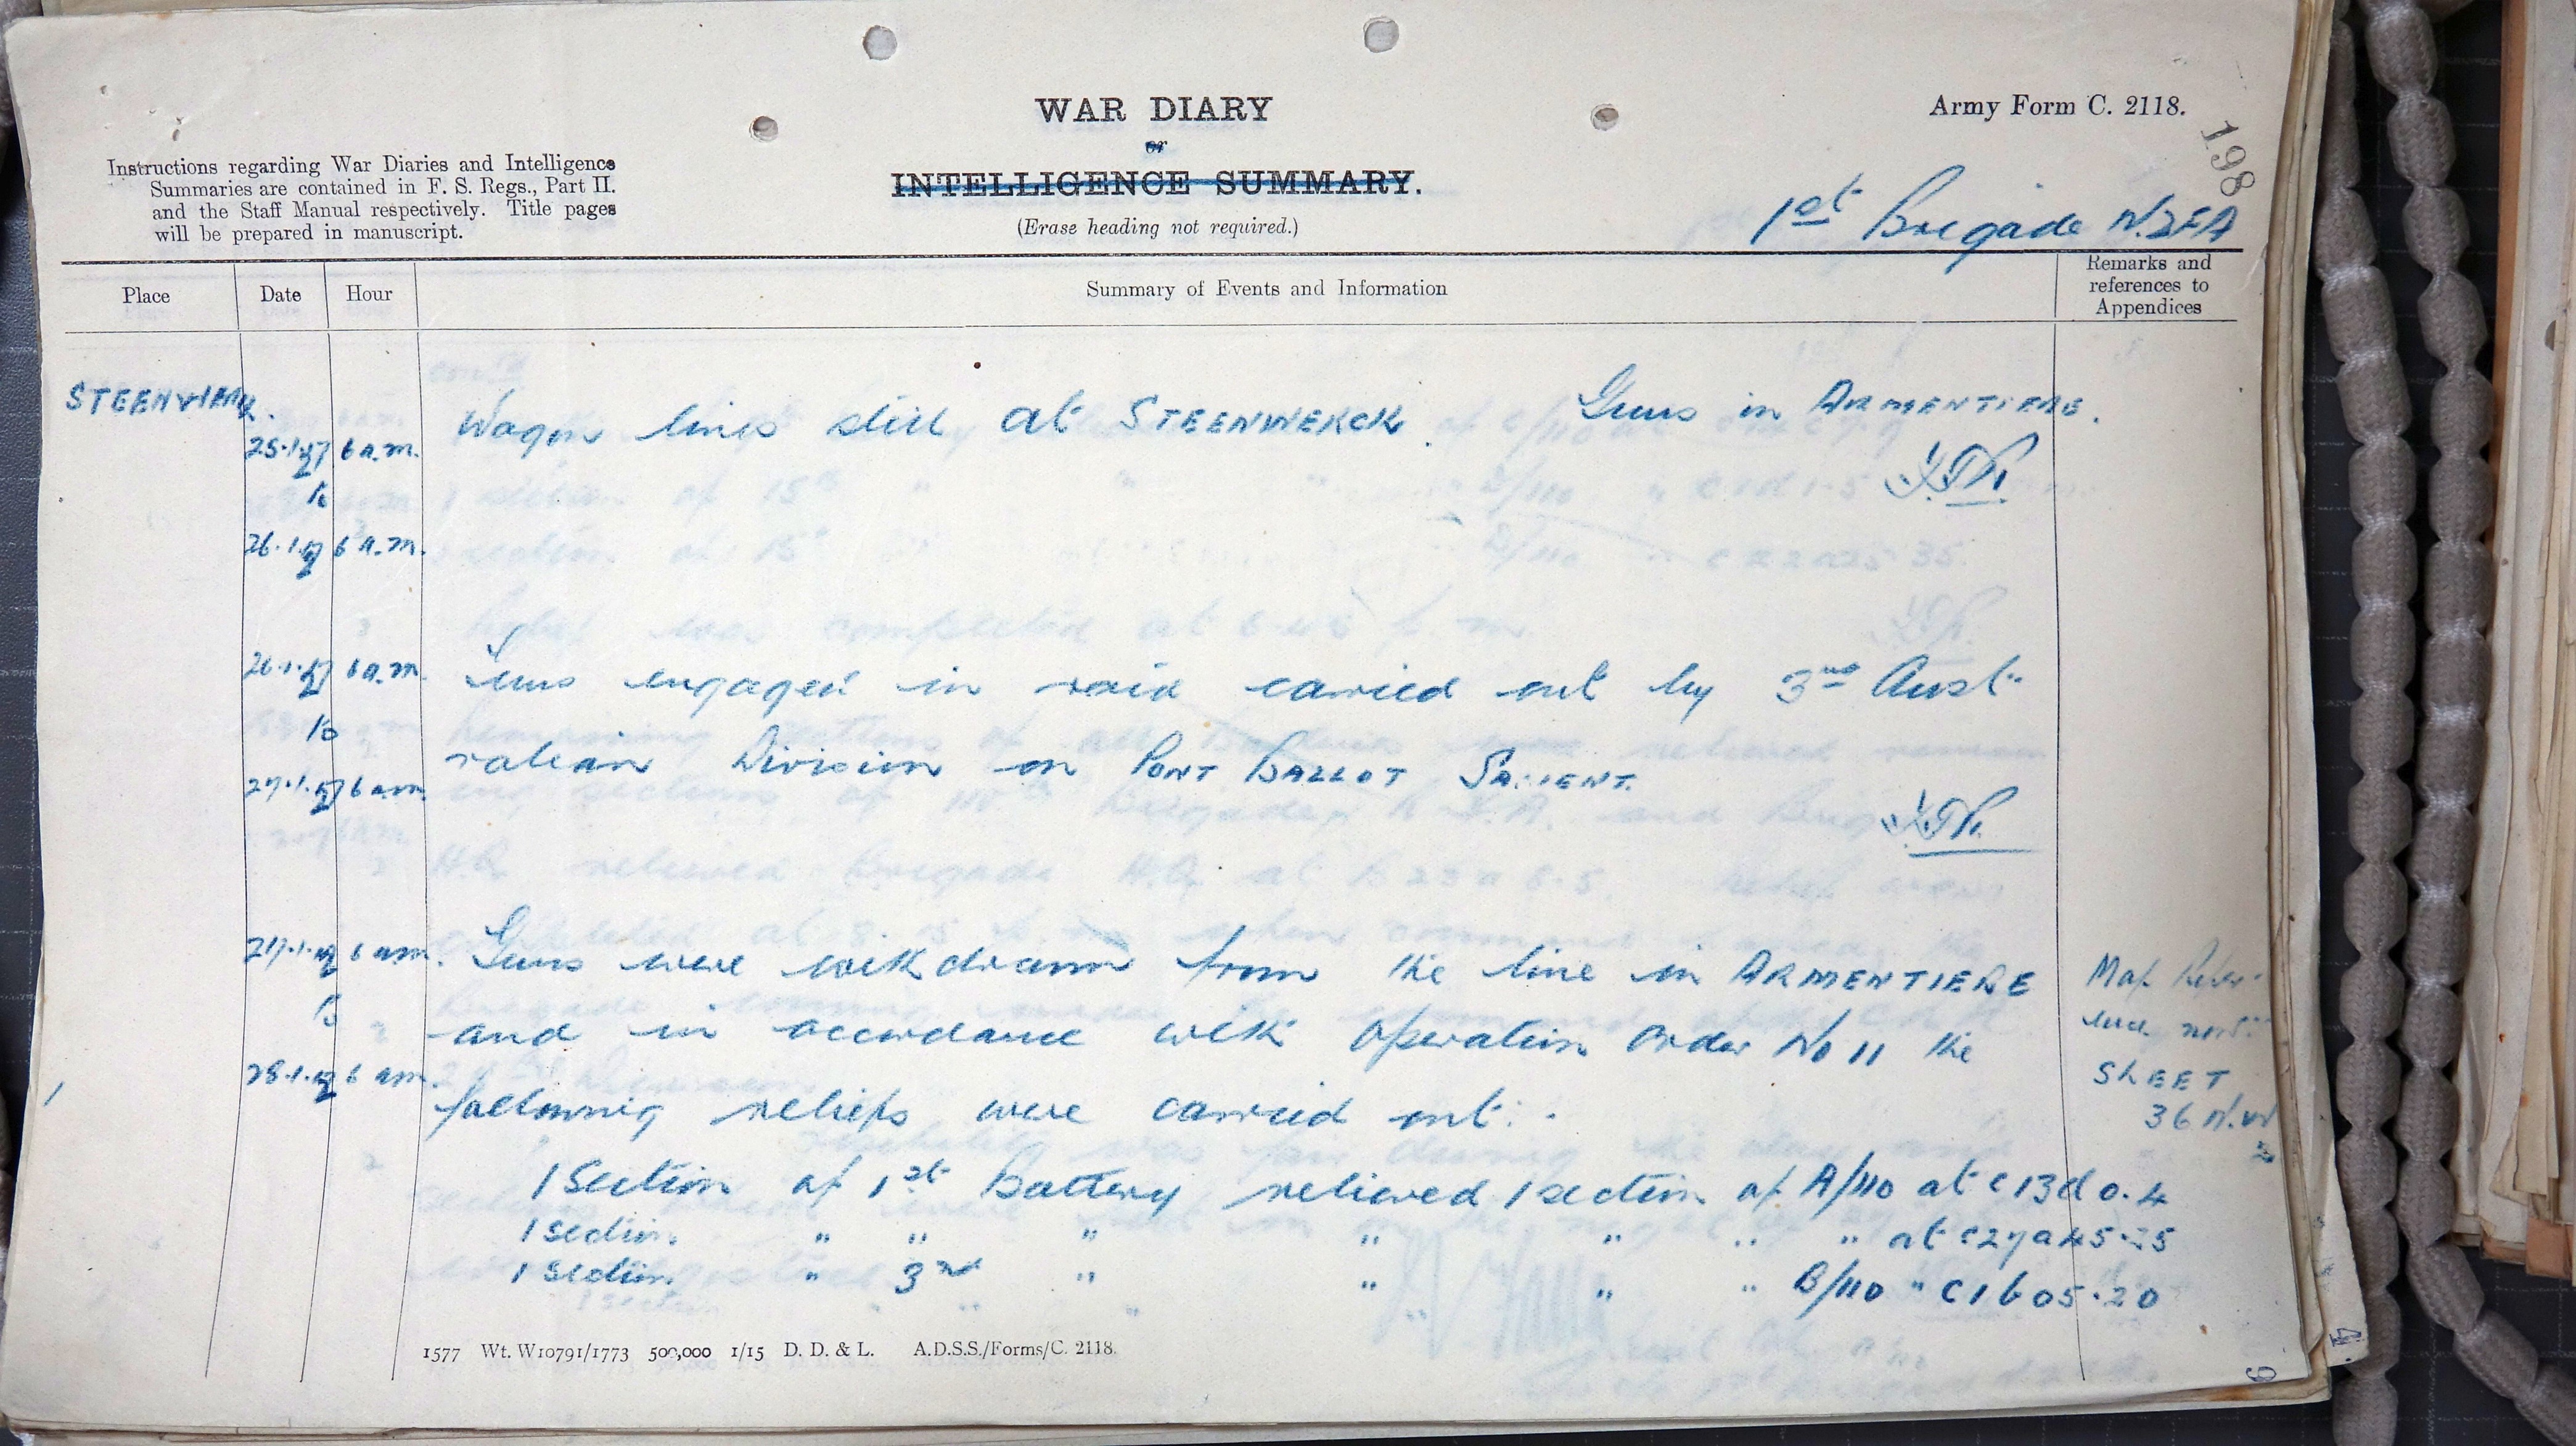 WAR DIARY
or
INTELLIGENCE SUMMARY.
(Erase heading not required.)
Army Form C. 2118.
198
Instructions regarding War Diaries and Intelligence
Summaries are contained in F. S. Regs., Part II.
and the Staff Manual respectively. Title pages
will be prepared in manuscript.
1st Brigade N.Z.F.A
Place Date Hour Summary of Events and Information Remarks and references to Appendices
STEENWERK.
Wagon lines still at STEENWERCK. Guns in ARMENTIERS.
25.1.17 6 a.m.
to
26.1.17 6 a.m.
26.1.17 6 a.m. Guns engaged in raid carried out by 3rd Aust-
to
ralian Division on PONT BALLOT SALIENT.
27.1.17 6 a.m.
27.1.17 6 am. Guns were withdrawn from the line in ARMENTIERE
to
and in accordance with Operation Order No 11 the
28.1.17 6 am.
following reliefs were carried out:-
Map Refer-
ence
SHEET
36 N.W
1 Section of 1st Battery relieved 1 section of A/110 at C13d0.4
1 Section " " " " " " " at C27a45.25
1 Section " 3rd " " " " B/110 " C1b05.20
1577 Wt. W10791/1773 500,000 1/15 D. D. & L. A.D.S.S./Forms/C. 2118.